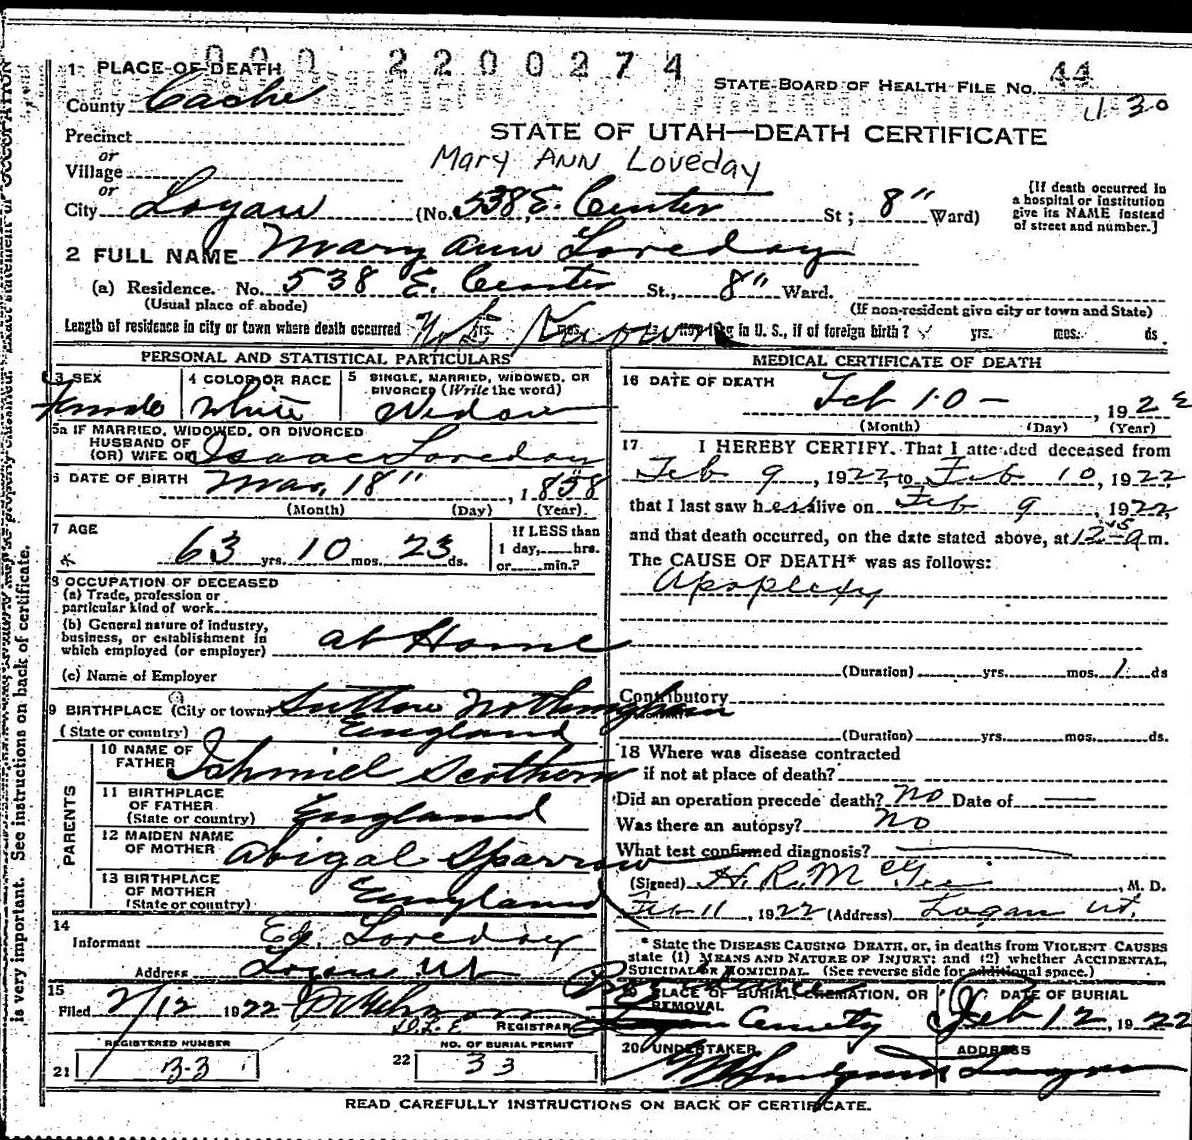 000 2200274
1 PLACE OF DEATH
STATE BOARD OF HEALTH FILE NO. 44
County Cache
430
Precinct
STATE OF UTAH—DEATH CERTIFICATE
or
Mary Ann Loveday
Village
or
City Logan (No. 538 E. Center St; 8" Ward)
[If death occurred in a hospital or institution give its NAME instead of street and number.]
2 FULL NAME Mary Ann Loveday
(a) Residence. No. 538 E. Center St., 8" Ward.
(Usual place of abode) (If non-resident give city or town and State)
Length of residence in city or town where death occurred Not Known yrs. mos. ds. How long in U. S., if of foreign birth? yrs. mos. ds.
PERSONAL AND STATISTICAL PARTICULARS
3 SEX 4 COLOR OR RACE 5 SINGLE, MARRIED, WIDOWED, OR DIVORCED (Write the word)
Female White Widow
5a IF MARRIED, WIDOWED, OR DIVORCED
HUSBAND OF
(OR) WIFE OF Isaac Loveday
6 DATE OF BIRTH Mar. 18" , 1858
(Month) (Day) (Year)
7 AGE 63 yrs. 10 mos. 23 ds.
If LESS than 1 day, hrs. or min.?
8 OCCUPATION OF DECEASED
(a) Trade, profession or
particular kind of work
(b) General nature of industry,
business, or establishment in
which employed (or employer) at Home
(c) Name of Employer
9 BIRTHPLACE (City or town) Sutton Nothingham
(State or country) England
PARENTS
10 NAME OF FATHER Ishmiel Scothern
11 BIRTHPLACE OF FATHER (State or country) England
12 MAIDEN NAME OF MOTHER Abigal Sparrow
13 BIRTHPLACE OF MOTHER (State or country) England
14
Informant Loveday
Address Logan Ut
15
Filed 2/12 1922
REGISTRAR
REGISTERED NUMBER
21 33
NO. OF BURIAL PERMIT
22 33
MEDICAL CERTIFICATE OF DEATH
16 DATE OF DEATH Feb 10 - , 192
(Month) (Day) (Year)
17 I HEREBY CERTIFY. That I attended deceased from
Feb 9 , 1922, to Feb 10, 1922,
that I last saw her alive on Feb 9 , 1922,
and that death occurred, on the date stated above, at 12 a m.
The CAUSE OF DEATH* was as follows:
Apoplexy
(Duration) yrs. mos. 1 ds
Contributory
(Duration) yrs. mos. ds.
18 Where was disease contracted
if not at place of death?
Did an operation precede death? No Date of
Was there an autopsy? no
What test confirmed diagnosis?
(Signed) H. R. McGee , M. D.
Feb 11 , 1922 (Address) Logan Ut.
* State the DISEASE CAUSING DEATH, or, in deaths from VIOLENT CAUSES
state (1) MEANS AND NATURE OF INJURY; and (2) whether ACCIDENTAL,
SUICIDAL OR HOMICIDAL. (See reverse side for additional space.)
Providence
19 PLACE OF BURIAL, CREMATION, OR REMOVAL DATE OF BURIAL
Cemety Feb 12, 1922
20 UNDERTAKER ADDRESS
Logan
READ CAREFULLY INSTRUCTIONS ON BACK OF CERTIFICATE.
is very important. See instructions on back of certificate.